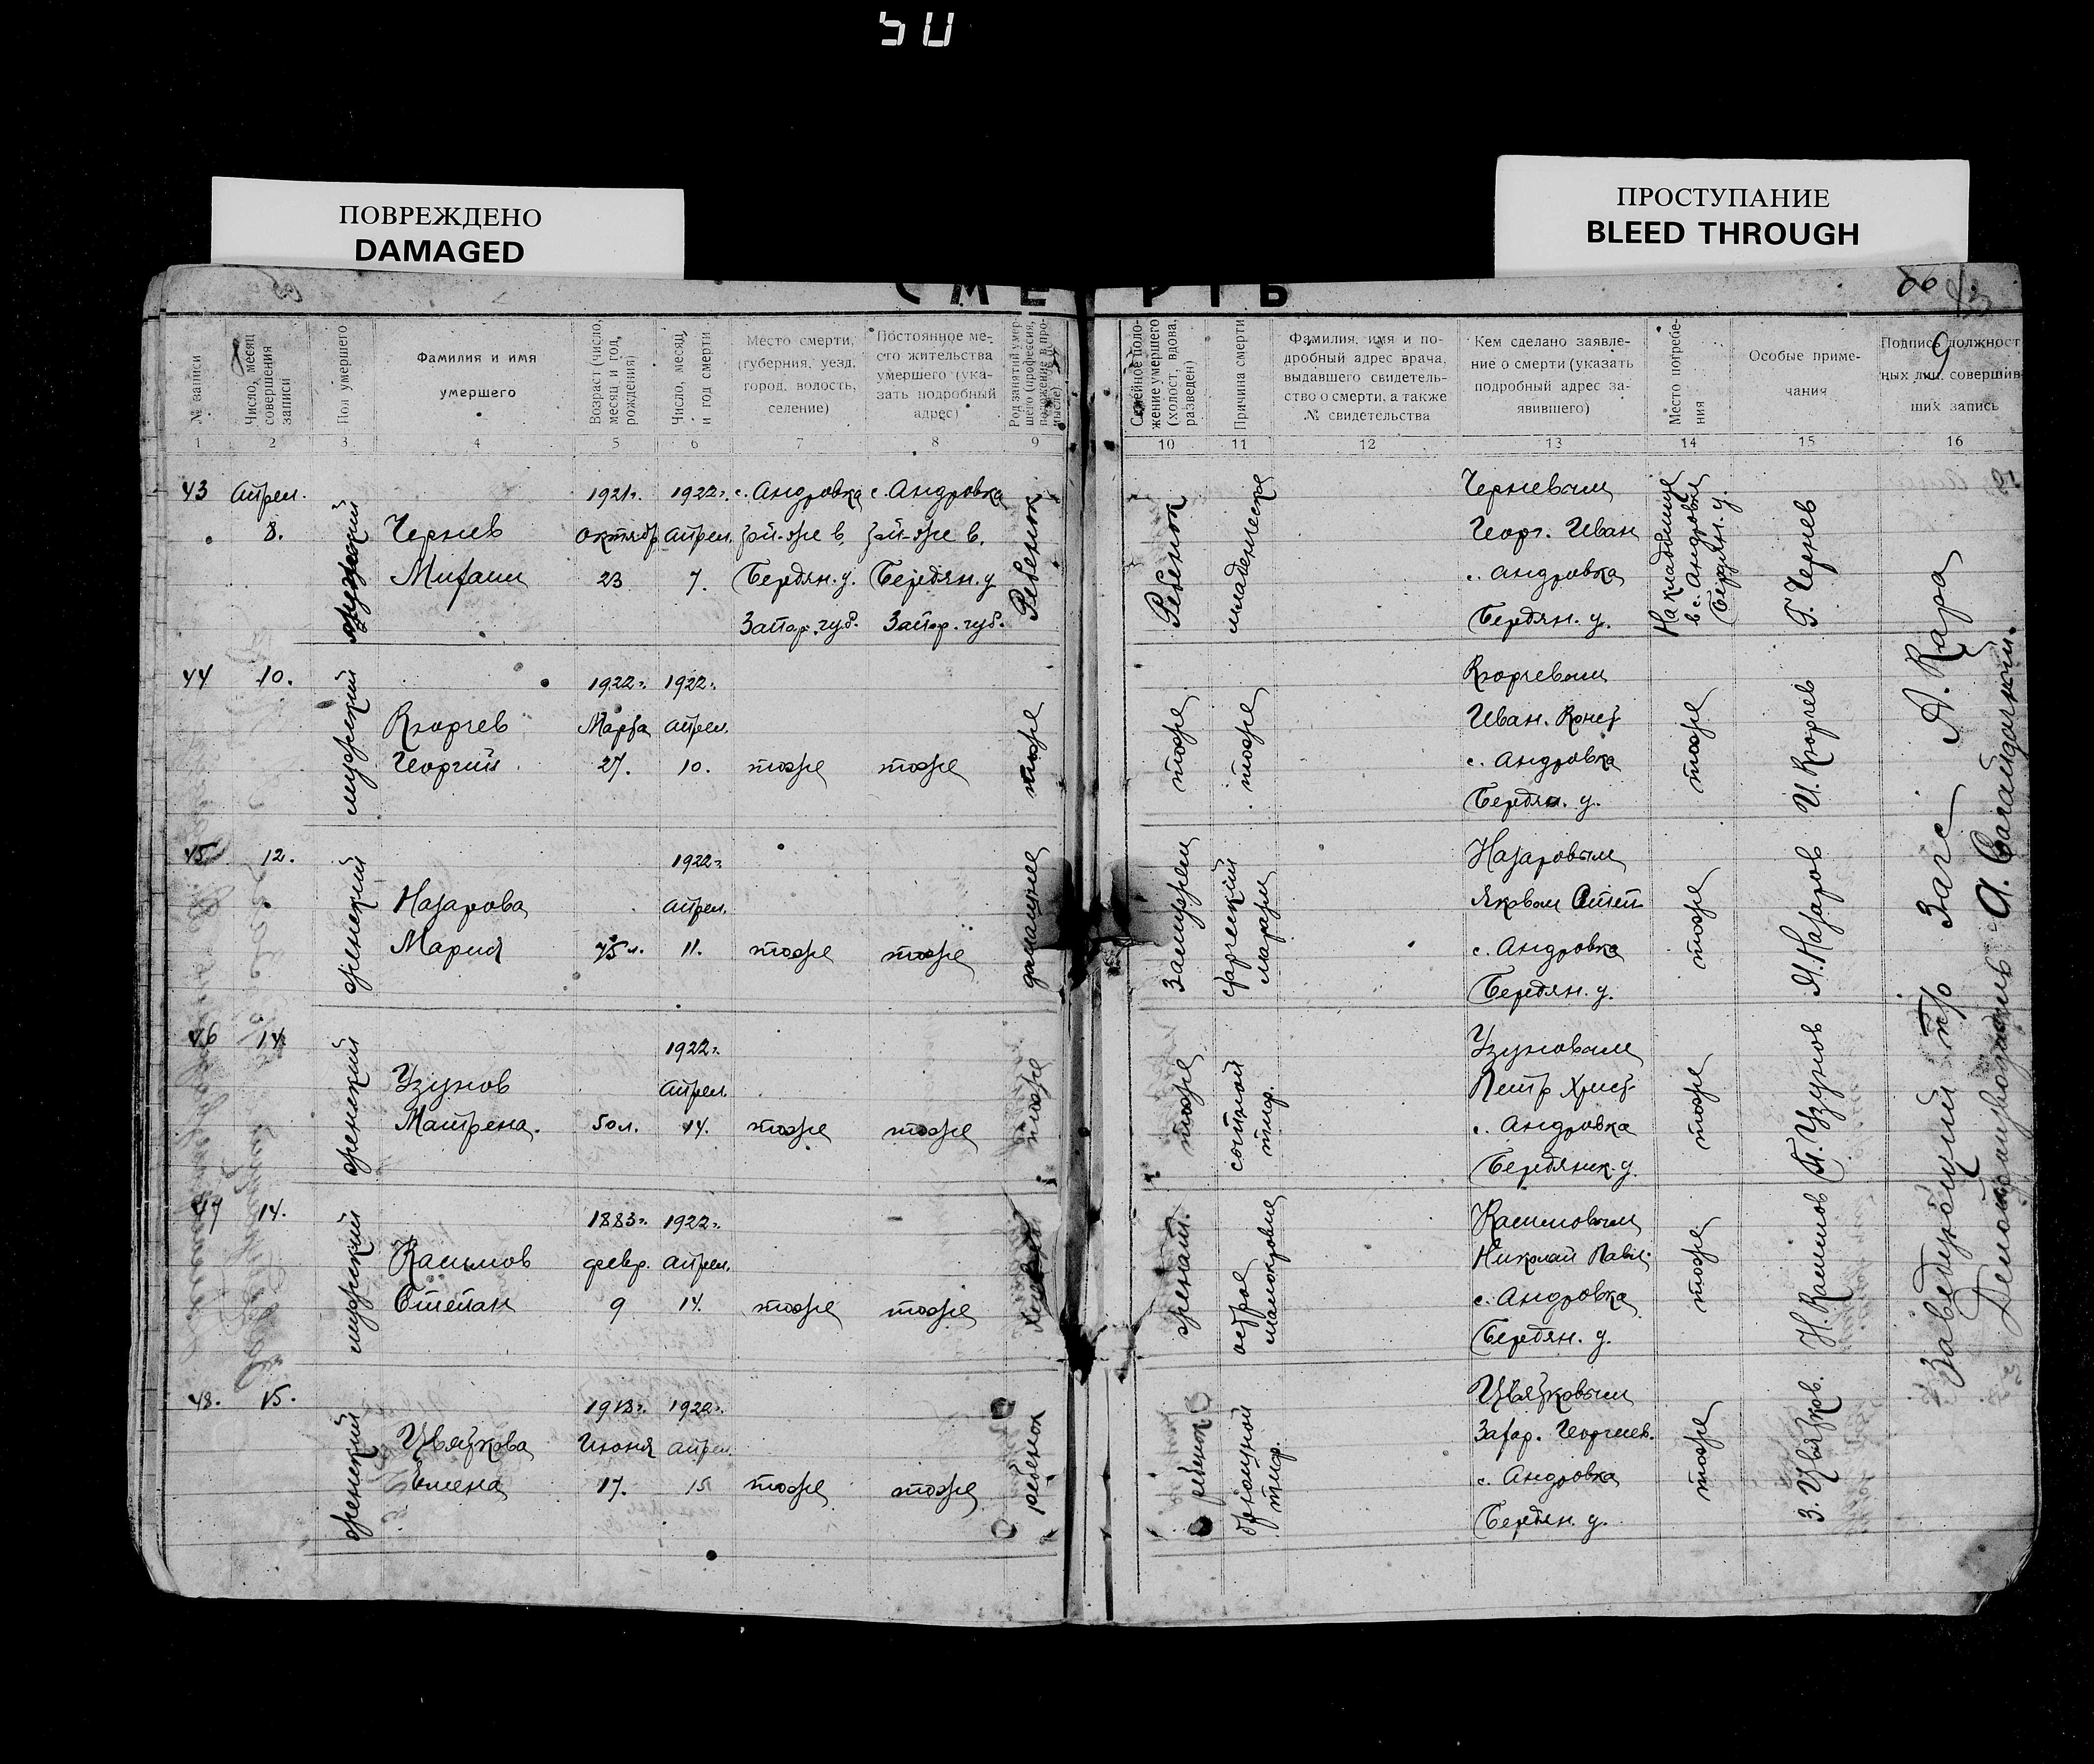 50
ПОВРЕЖДЕНО
DAMAGED
ПРОСТУПАНИЕ
BLEED THROUGH
66
СМЕРТЬ
№ записи
Число, месяц совершения записи
Пол умершего
Фамилия и имя умершего
Возраст (число, месяц и год рождения)
Число, месяц и год смерти
Место смерти, (губерния, уезд, город, волость, селение)
Постоянное место жительства умершего (указать подробный адрес)
Род занятий умершего (профессия, положение в промысле)
Семейное положение умершего (холост, вдова, разведен)
Причина смерти
Фамилия, имя и подробный адрес врача, выдавшего свидетельство о смерти, а также № свидетельства
Кем сделано заявление о смерти (указать подробный адрес заявившего)
Место погребения
Особые примечания
Подпись должностных лиц, совершивших запись
1 2 3 4 5 6 7 8 9 10 11 12 13 14 15 16
43 Апрел. 8.
мужеский
Чернев
Михаил
1921г. октябр 23
1922г. Апрел. 7.
с. Андровка
той-же в.
Бердян. у.
Запор. губ.
с. Андровка
той-же в.
Бердян. у
Запор. губ.
Ребенок
Ребенок
младенческа
Черневым
Георг. Иван
с. Андровка
Бердян. у.
На кладбище
в с. Андровке
Бердян. у.
Г. Чернев
44 10.
мужеский
Кюрчев
Георгий
1922г. Марта 27.
1922г. апрел. 10.
тоже
тоже
тоже
тоже
тоже
Кюрчевым
Иван. Конст
с. Андровка
Бердян. у.
тоже
И. Кюрчев
45 12.
женский
Назарова
Мария
75 л.
1922г. апрел. 11.
тоже
тоже
домашнее
Замужем
старческий
маразм
Назаровым
Яковом Степ
с. Андровка
Бердян. у.
тоже
Я. Назаров
46 14.
женский
Узунов
Матрена.
50 л.
1922г. Апрел. 14.
тоже
тоже
тоже
тоже
сыпной
тиф.
Узуновым
Петр Христ
с. Андровка
Бердянск. у.
тоже
П. Узунов
47 14.
мужский
Касимов
Степан
1883г. февр. 9
1922г. апрел. 14.
тоже
тоже
женат.
острое
малокровие
Касимовым
Николай Павл.
с. Андровка
Бердян. у.
тоже
Н. Касимов
48. 15.
женский
Цвяткова
Елена
1913г. Июня 17.
1922г. апрел 15
тоже
тоже
ребенок
ребенок
брюшной
тиф.
Цвятковым
Захар. Георгиев.
с. Андровка
Бердян. у.
тоже
З. Цвятков.
Заведующий п/о Загс А. Кара
Делопроизводитель